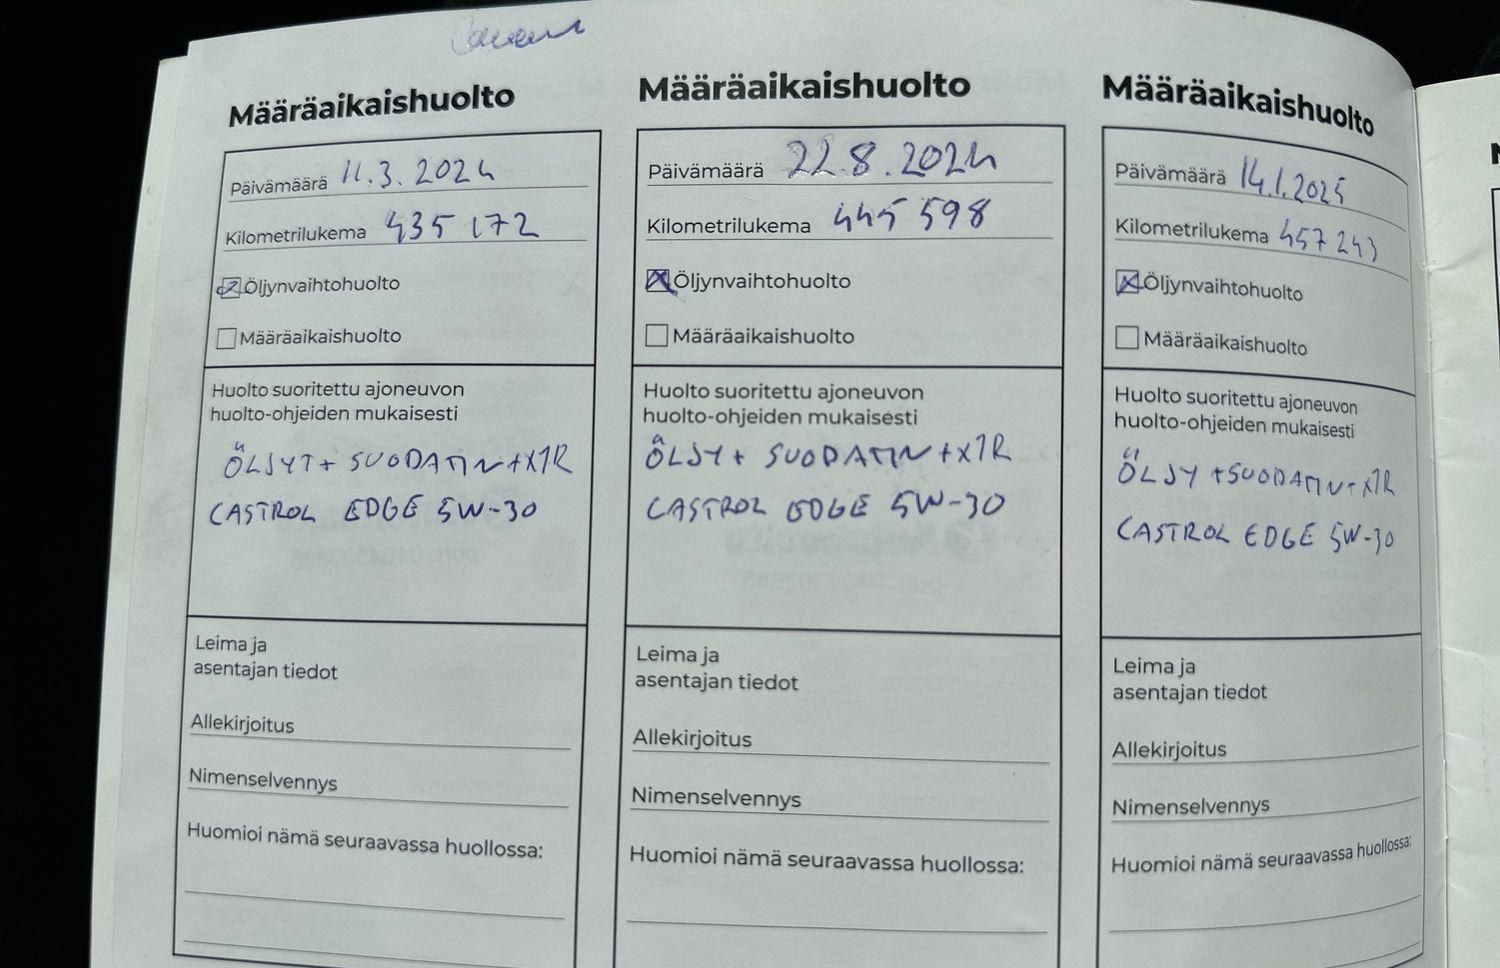 Määräaikaishuolto
Päivämäärä 11.3.2024
Kilometrilukema 435 172
Öljynvaihtohuolto
Määräaikaishuolto
Huolto suoritettu ajoneuvon
huolto-ohjeiden mukaisesti
ÖLJYT + SUODATIN + X1R
CASTROL EDGE 5W-30
Leima ja
asentajan tiedot
Allekirjoitus
Nimenselvennys
Huomioi nämä seuraavassa huollossa:
Määräaikaishuolto
Päivämäärä 22.8.2024
Kilometrilukema 445 598
Öljynvaihtohuolto
Määräaikaishuolto
Huolto suoritettu ajoneuvon
huolto-ohjeiden mukaisesti
ÖLJY + SUODATIN + X1R
CASTROL EDGE 5W-30
Leima ja
asentajan tiedot
Allekirjoitus
Nimenselvennys
Huomioi nämä seuraavassa huollossa:
Määräaikaishuolto
Päivämäärä 14.1.2025
Kilometrilukema 457 243
Öljynvaihtohuolto
Määräaikaishuolto
Huolto suoritettu ajoneuvon
huolto-ohjeiden mukaisesti
ÖLJY + SUODATIN + X1R
CASTROL EDGE 5W-30
Leima ja
asentajan tiedot
Allekirjoitus
Nimenselvennys
Huomioi nämä seuraavassa huollossa: